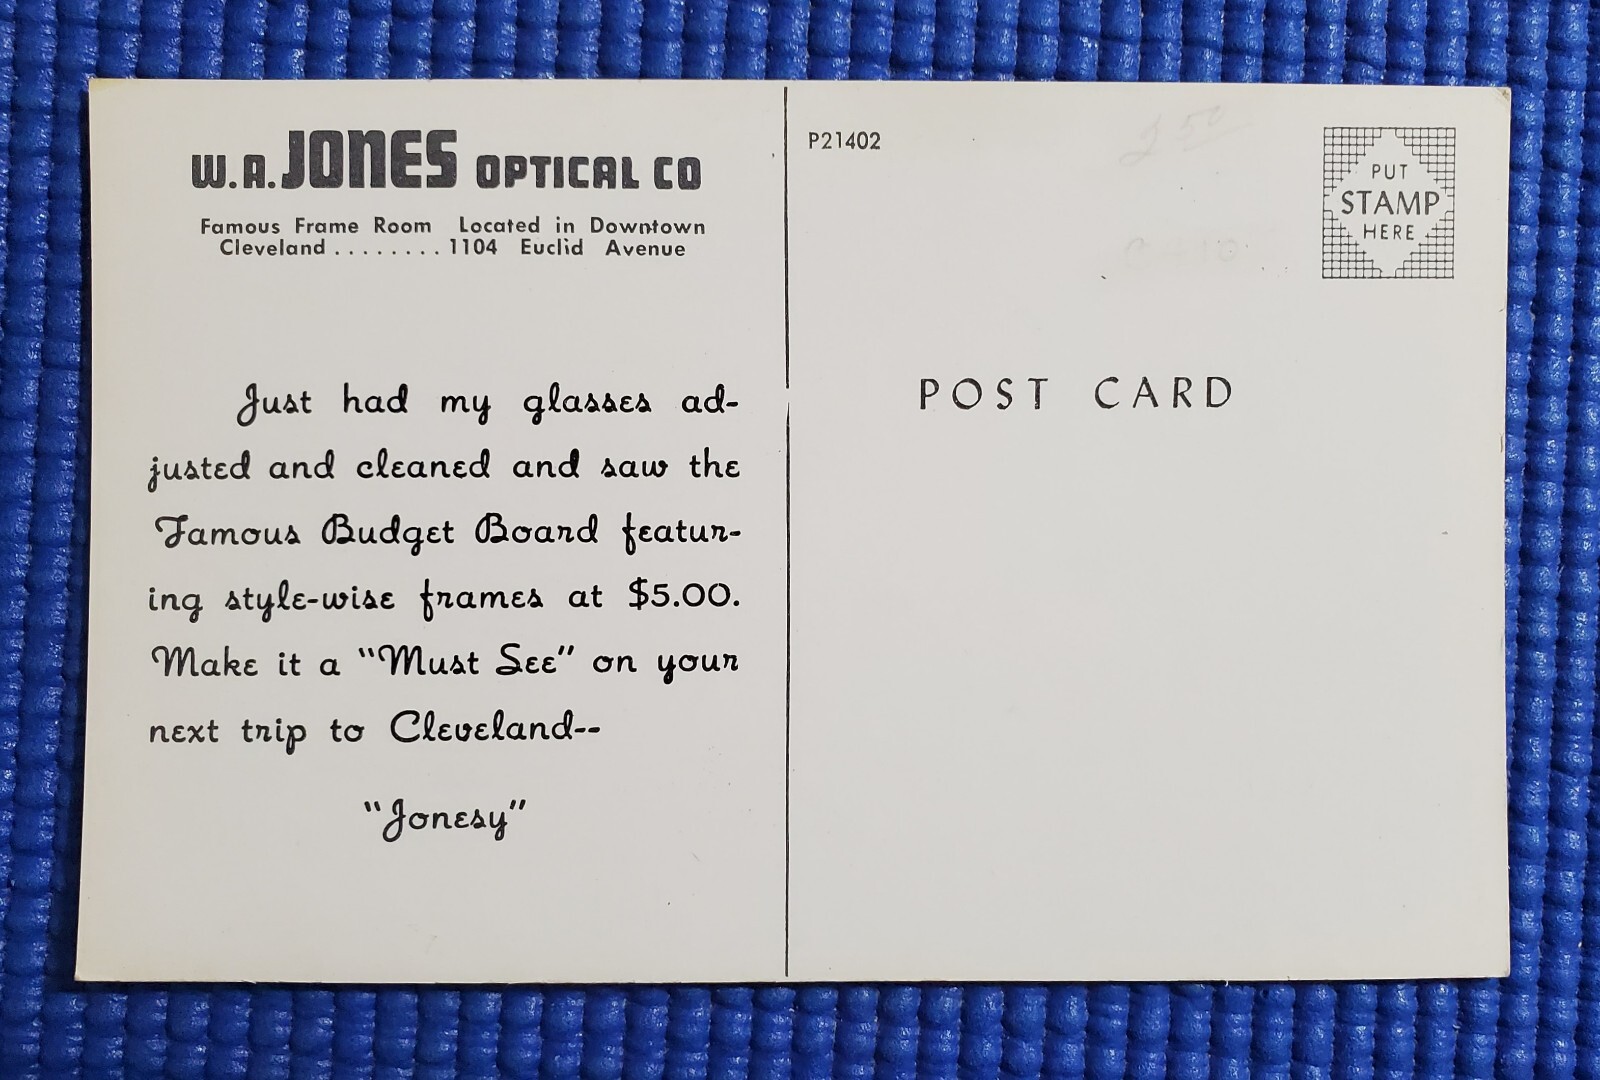 W.A. JONES OPTICAL CO
Famous Frame Room Located in Downtown
Cleveland ........ 1104 Euclid Avenue
Just had my glasses ad-
justed and cleaned and saw the
Famous Budget Board featur-
ing style-wise frames at $5.00.
Make it a "Must See" on your
next trip to Cleveland--
"Jonesy"
P21402
PUT
STAMP
HERE
POST CARD